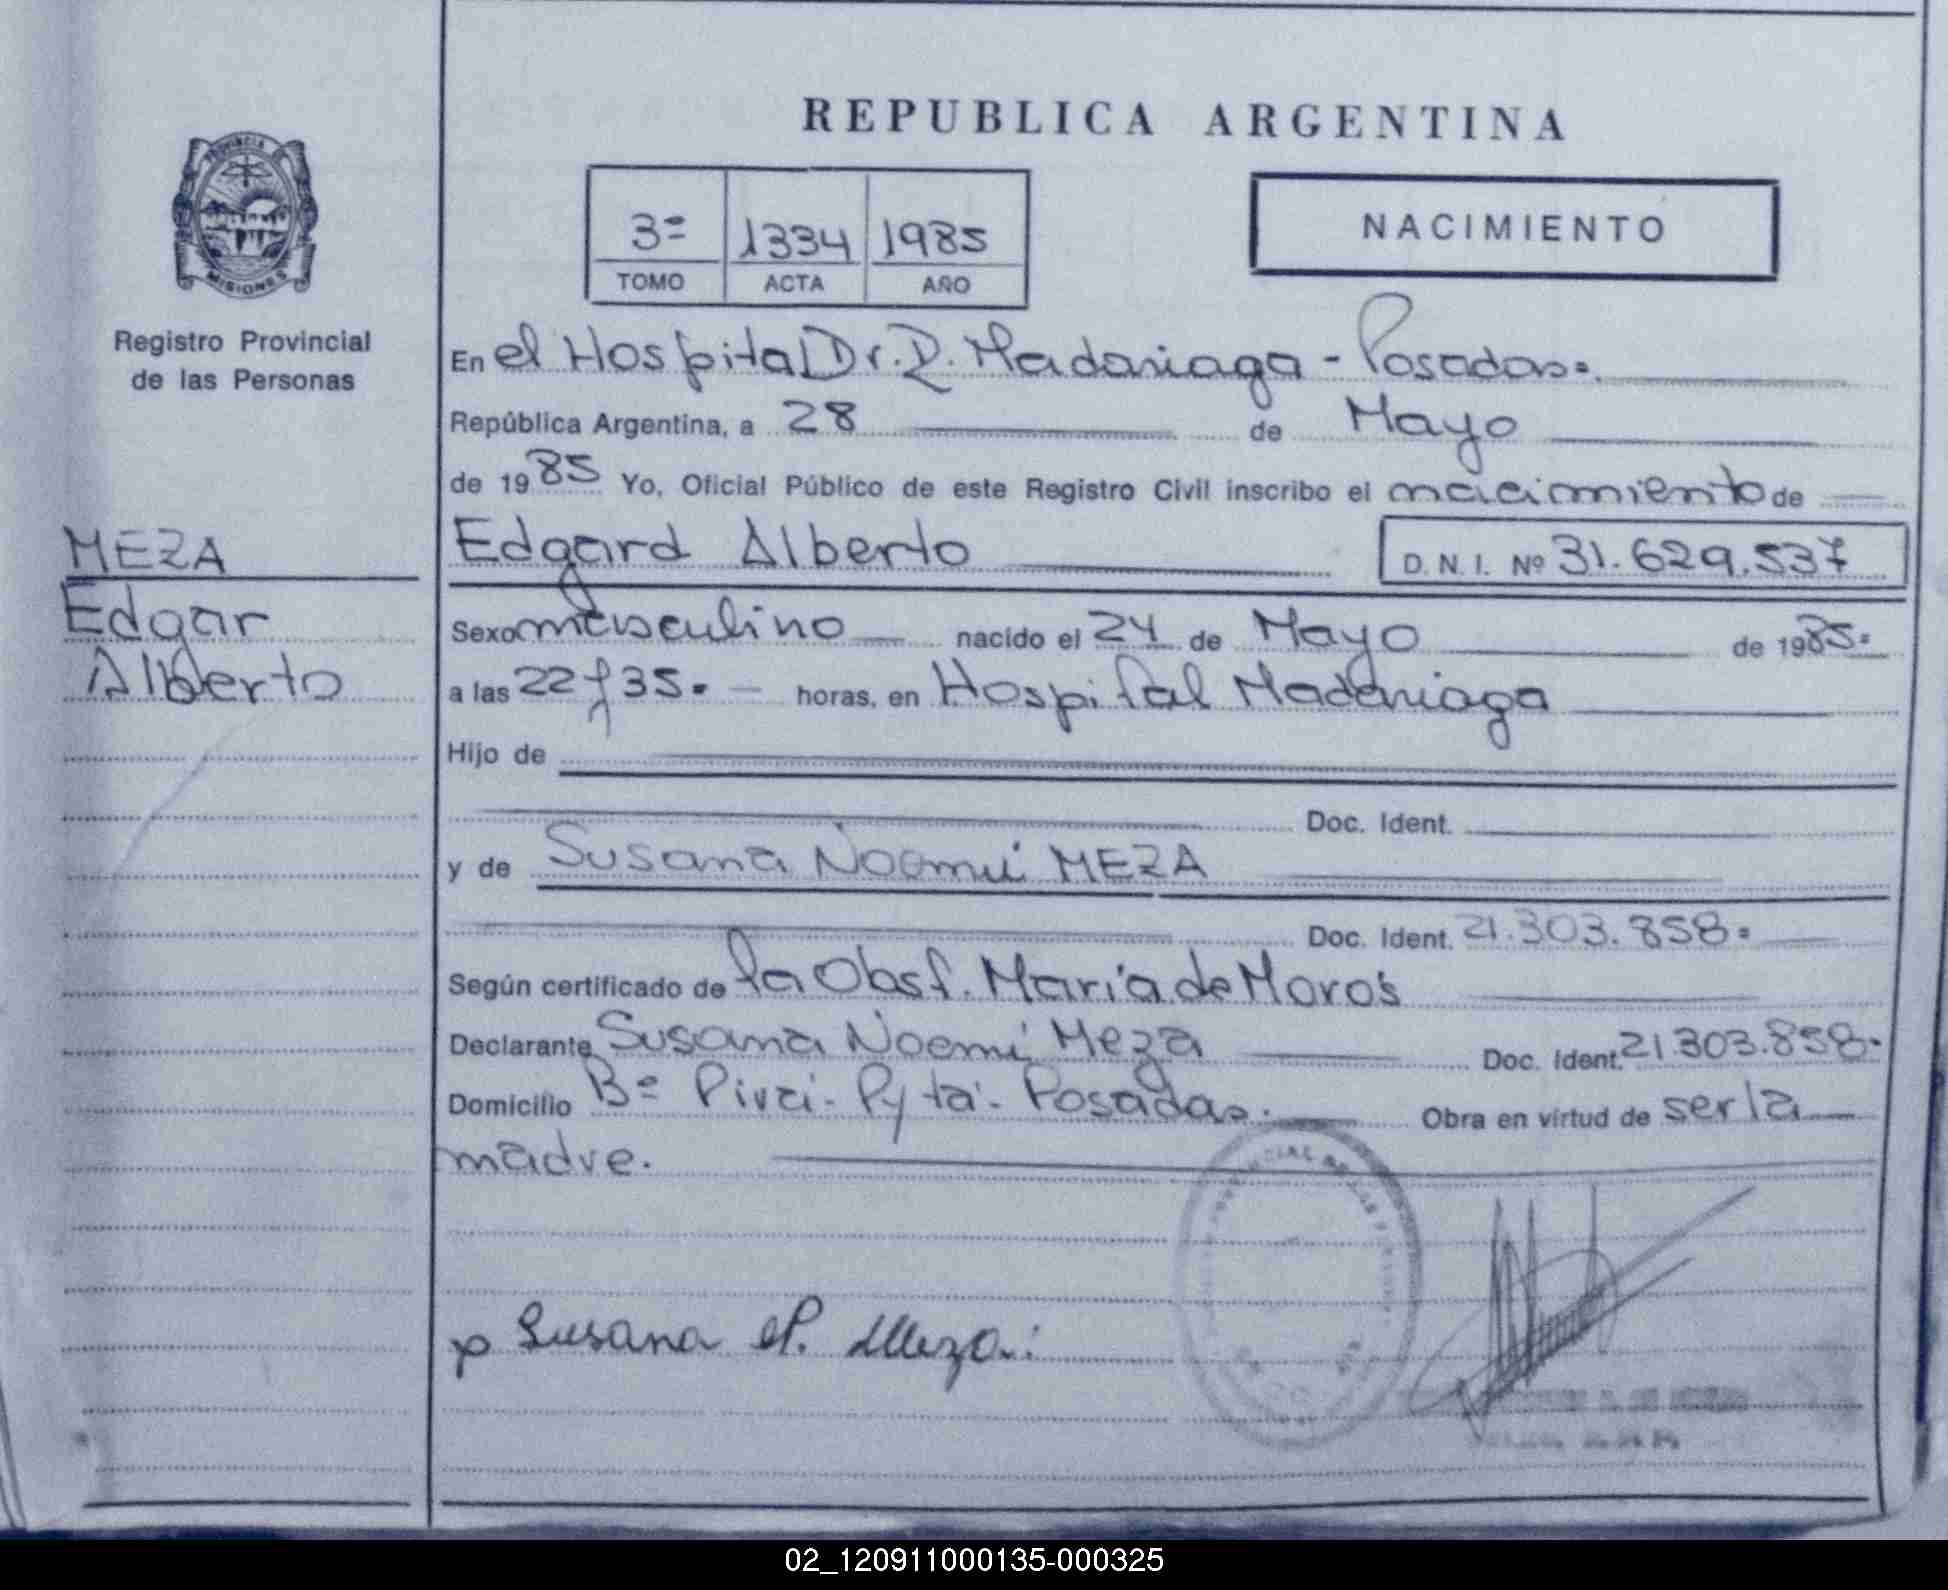 REPUBLICA ARGENTINA
PROVINCIA DE
MISIONES
Registro Provincial
de las Personas
3º 1334 1985
TOMO ACTA AÑO
NACIMIENTO
En el Hospital Dr. R. Madariaga - Posadas.
República Argentina, a 28 de Mayo
de 1985 Yo, Oficial Público de este Registro Civil inscribo el nacimiento de
MEZA
Edgar
Alberto
Edgard Alberto D.N.I. Nº 31.629.537
Sexo masculino nacido el 24 de Mayo de 1985.
a las 22 y 35. horas, en Hospital Madariaga
Hijo de
Doc. Ident.
y de Susana Noemí MEZA
Doc. Ident. 21.303.858.
Según certificado de la Obst. María de
Declarante Susana Noemí Meza Doc. Ident. 21.303.858.
Domicilio Bº Pyta. Posadas. Obra en virtud de ser la
madre.
Susana N. Meza
02_120911000135-000325